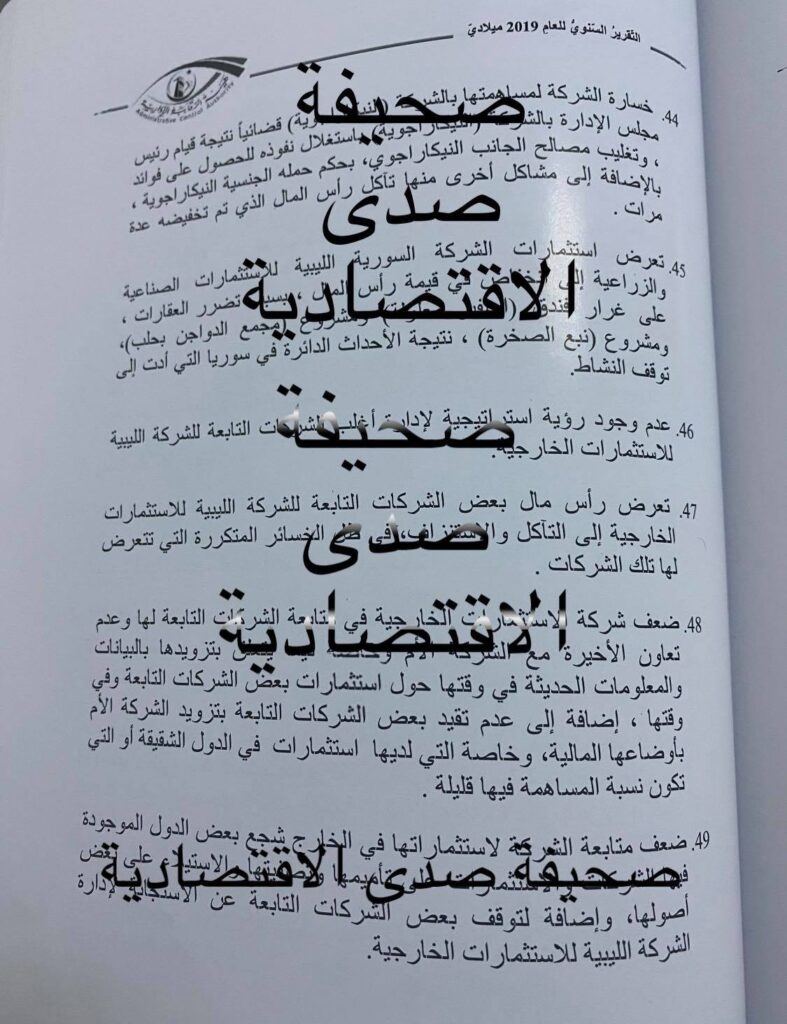 التقرير السنوي للعام 2019 ميلادي
Administrative Control Authority
44. خسارة الشركة لمساهمتها بالشركة قضائياً نتيجة قيام رئيس
مجلس الإدارة بالشركة (النيكاراجوية) باستغلال نفوذه للحصول على فوائد
، وتغليب مصالح الجانب النيكاراجوي، بحكم حمله الجنسية النيكاراجوية ،
بالإضافة إلى مشاكل أخرى منها تآكل رأس المال الذي تم تخفيضه عدة
مرات .
45. تعرض استثمارات الشركة السورية الليبية للاستثمارات الصناعية
والزراعية إلى في قيمة رأس المال ، بسبب تضرر العقارات ،
على غرار فندق ومشروع (مجمع الدواجن بحلب)،
ومشروع (نبع الصخرة) ، نتيجة الأحداث الدائرة في سوريا التي أدت إلى
توقف النشاط.
46. عدم وجود رؤية استراتيجية لإدارة أغلب الشركات التابعة للشركة الليبية
للاستثمارات الخارجية.
47. تعرض رأس مال بعض الشركات التابعة للشركة الليبية للاستثمارات
الخارجية إلى التآكل والاستنزاف، في ظل الخسائر المتكررة التي تتعرض
لها تلك الشركات .
48. ضعف شركة الاستثمارات الخارجية في متابعة الشركات التابعة لها وعدم
تعاون الأخيرة مع الشركة الأم وخاصة فيما يتعلق بتزويدها بالبيانات
والمعلومات الحديثة في وقتها حول استثمارات بعض الشركات التابعة وفي
وقتها ، إضافة إلى عدم تقيد بعض الشركات التابعة بتزويد الشركة الأم
بأوضاعها المالية، وخاصة التي لديها استثمارات في الدول الشقيقة أو التي
تكون نسبة المساهمة فيها قليلة .
49. ضعف متابعة الشركة لاستثماراتها في الخارج شجع بعض الدول الموجودة
فيها على تأميمها والاستيلاء على بعض
أصولها، وإضافة لتوقف بعض الشركات التابعة عن الاستجابة لإدارة
الشركة الليبية للاستثمارات الخارجية.
صحيفة
صدى
الاقتصادية
صحيفة
صدى
الاقتصادية
صحيفة صدى الاقتصادية